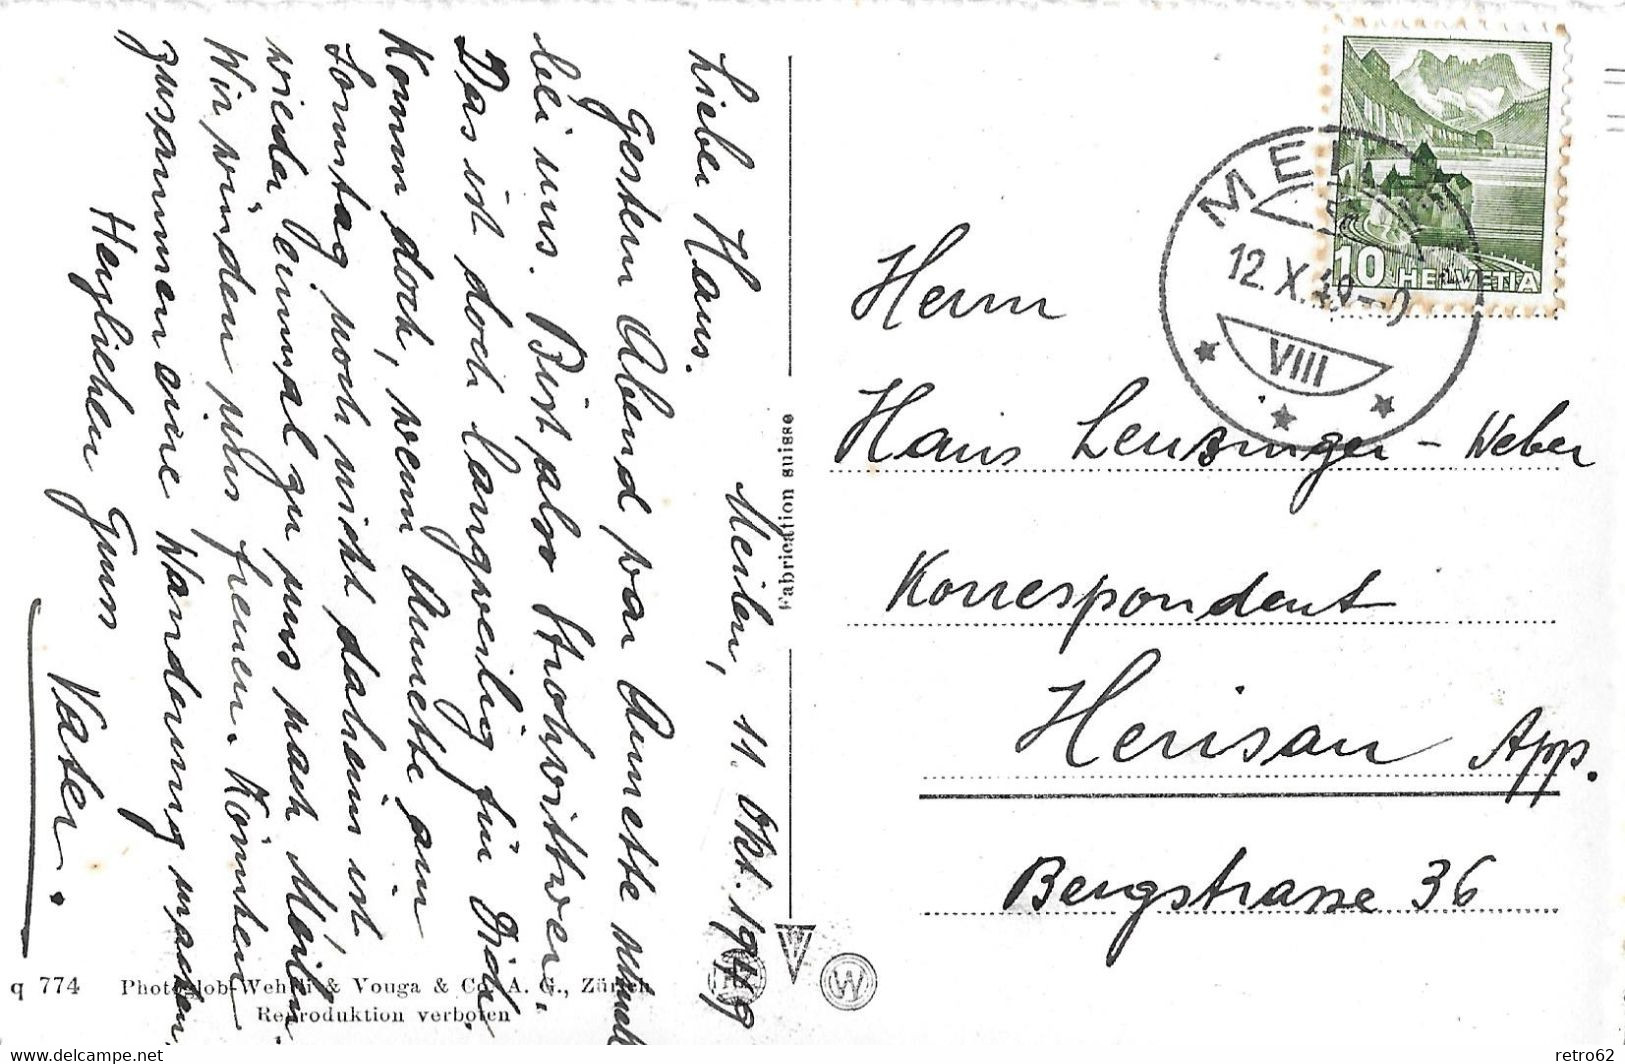 Meilen, 11. Okt. 1949
Lieber Hans.
Gestern Abend war Annette schnell
bei uns. Bist also Strohwittwer.
Das ist doch langweilig für Dich.
Komm doch, wenn Annette am
Sonntag noch nicht daheim ist
wieder einmal zu uns nach Meilen.
Wir würden uns freuen. Könnten
zusammen eine Wanderung machen.
Herzlichen Gruss
Vater.
Fabrication suisse
q 774 Photoglob-Wehrli & Vouga & Co. A. G., Zürich
Reproduktion verboten
W
10 HELVETIA
12. X. 49
VIII
Herrn
Hans Leuzinger - Weber
Korrespondent
Herisau App.
Bergstrasse 36
https://www.delcampe.net
retro62